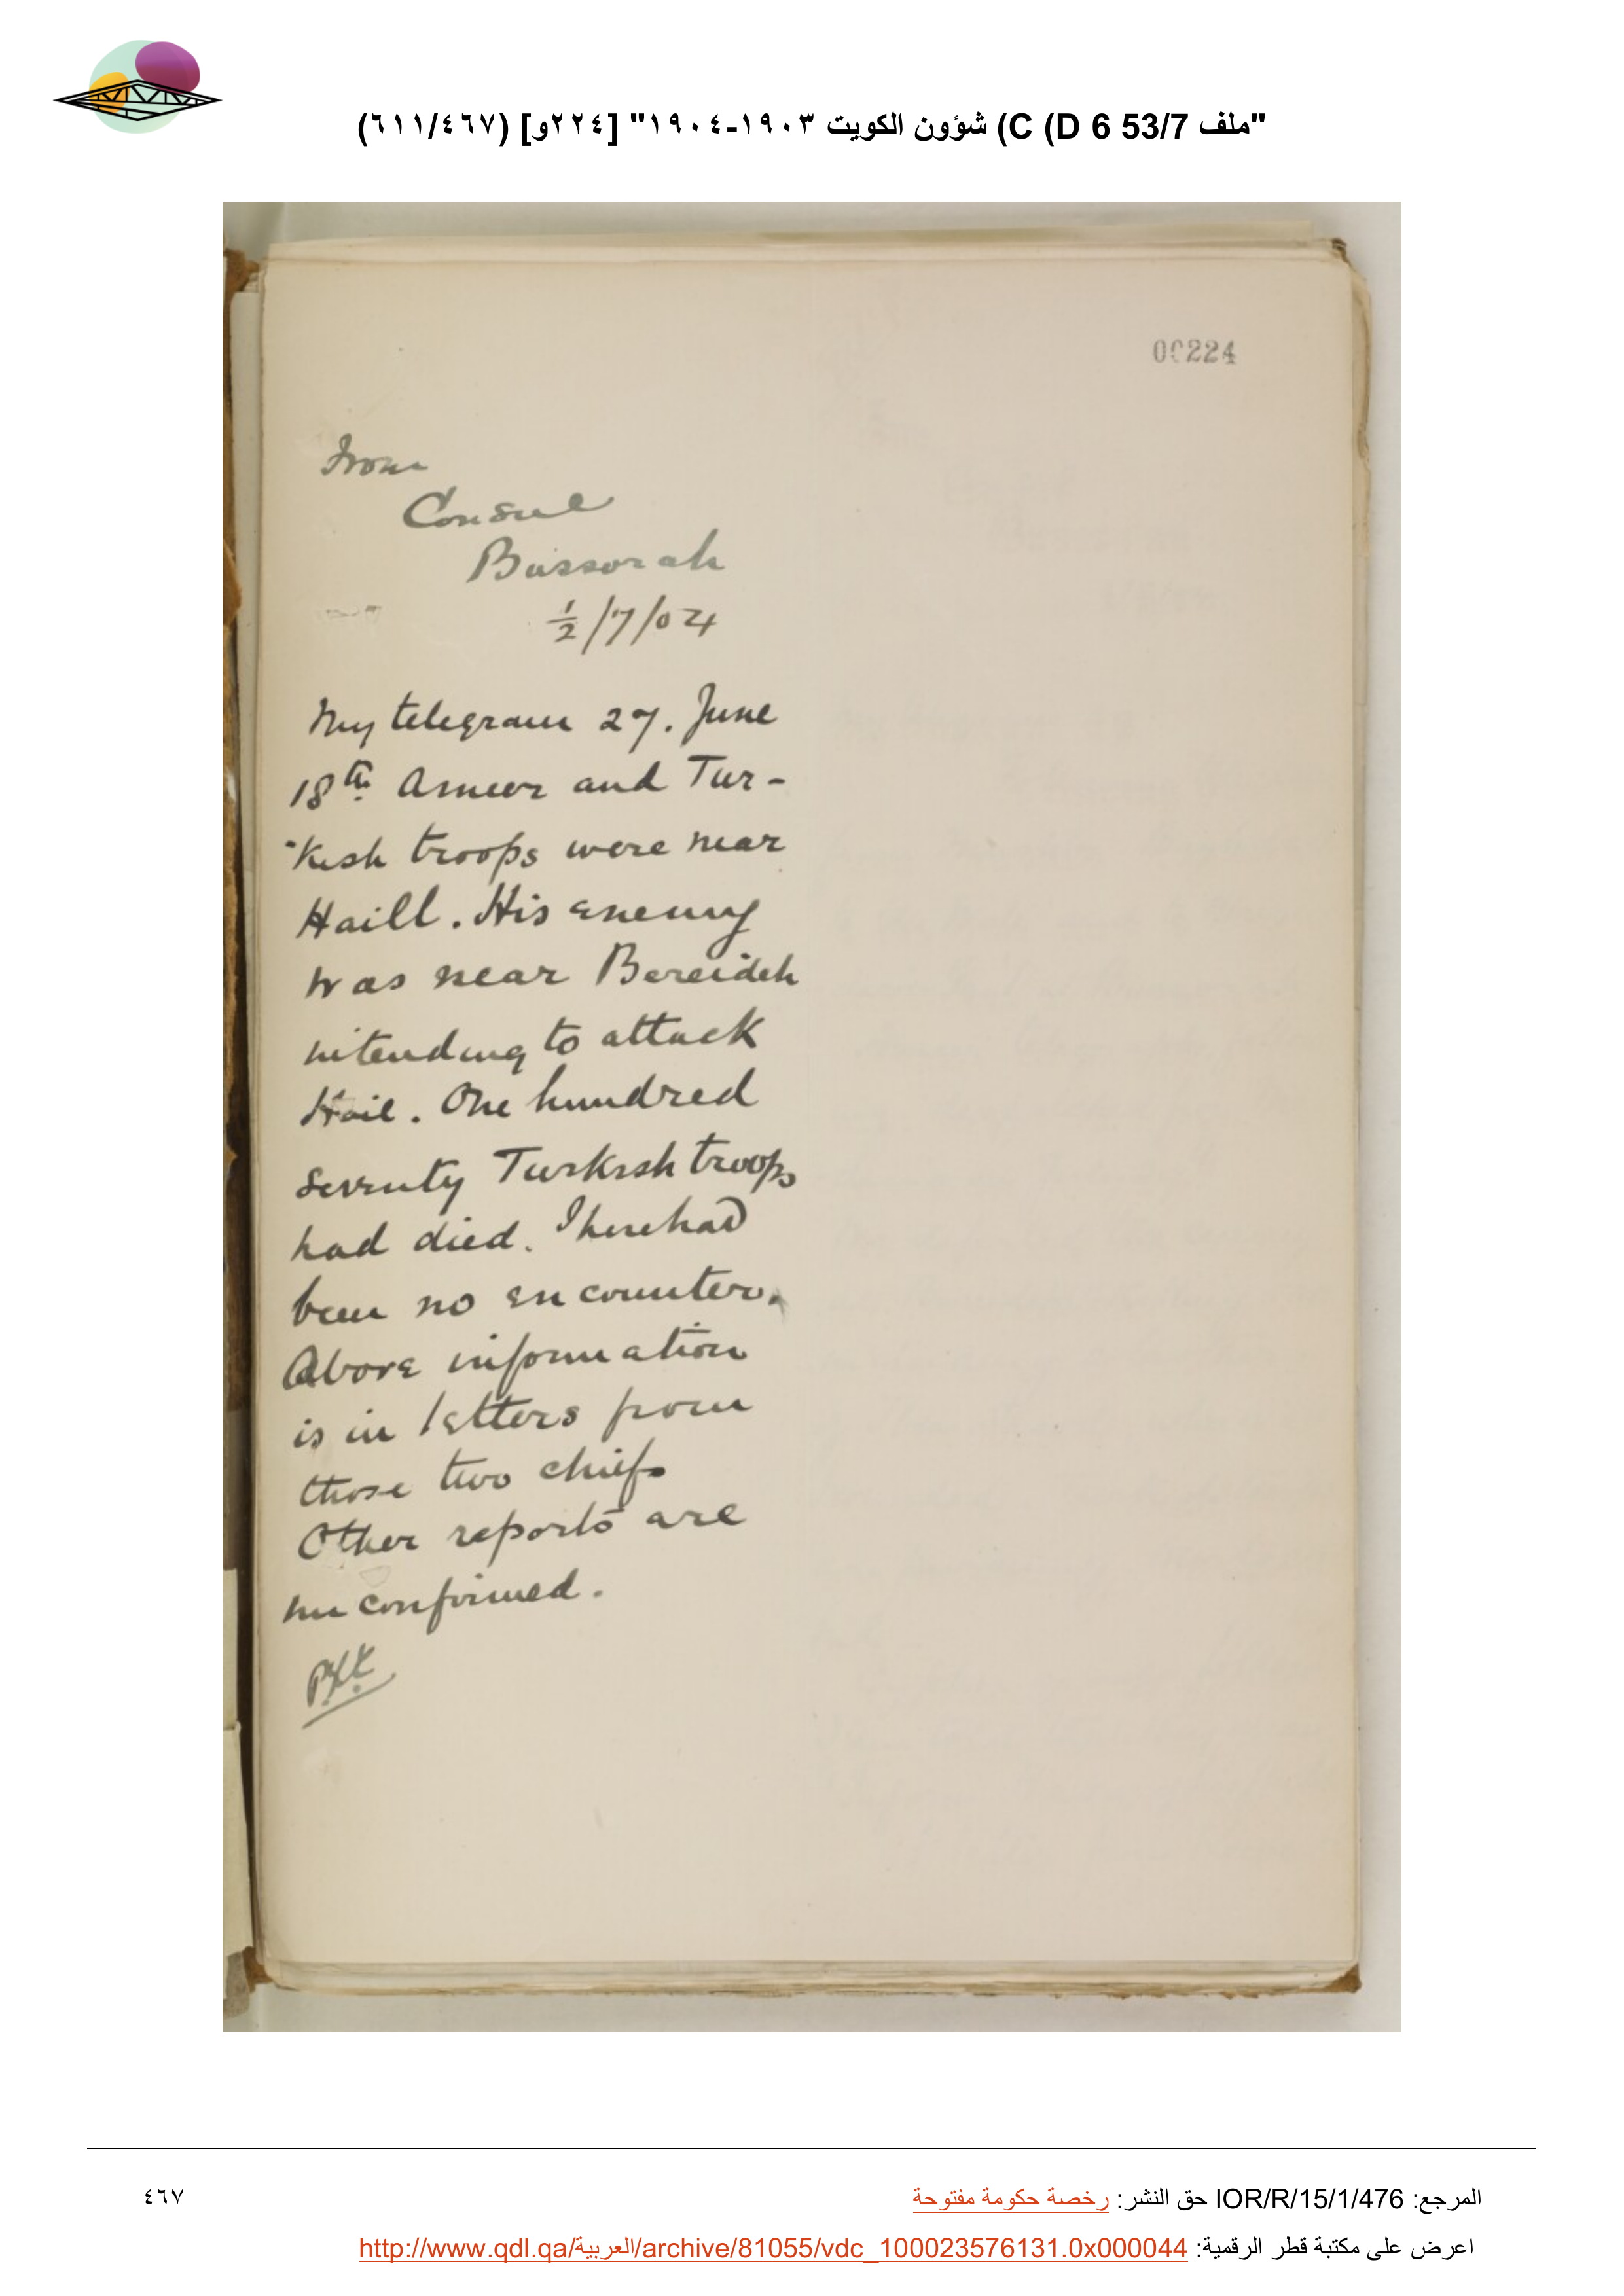 "ملف 53/7 D 6) C) شؤون الكويت ١٩٠٣-١٩٠٤" [٢٢٤و] (٦١١/٤٦٧)
00224
From
Consul
Bussorah
1/2/7/04
My telegram 27. June
18th Ameer and Tur-
-kish troops were near
Haill. His enemy
was near Bereideh
intending to attack
Hail. One hundred
seventy Turkish troops
had died. There had
been no encounter.
Above information
is in letters from
those two chiefs
Other reports are
unconfirmed.
المرجع: IOR/R/15/1/476 حق النشر: رخصة حكومة مفتوحة
٤٦٧
اعرض على مكتبة قطر الرقمية: http://www.qdl.qa/العربية/archive/81055/vdc_100023576131.0x000044